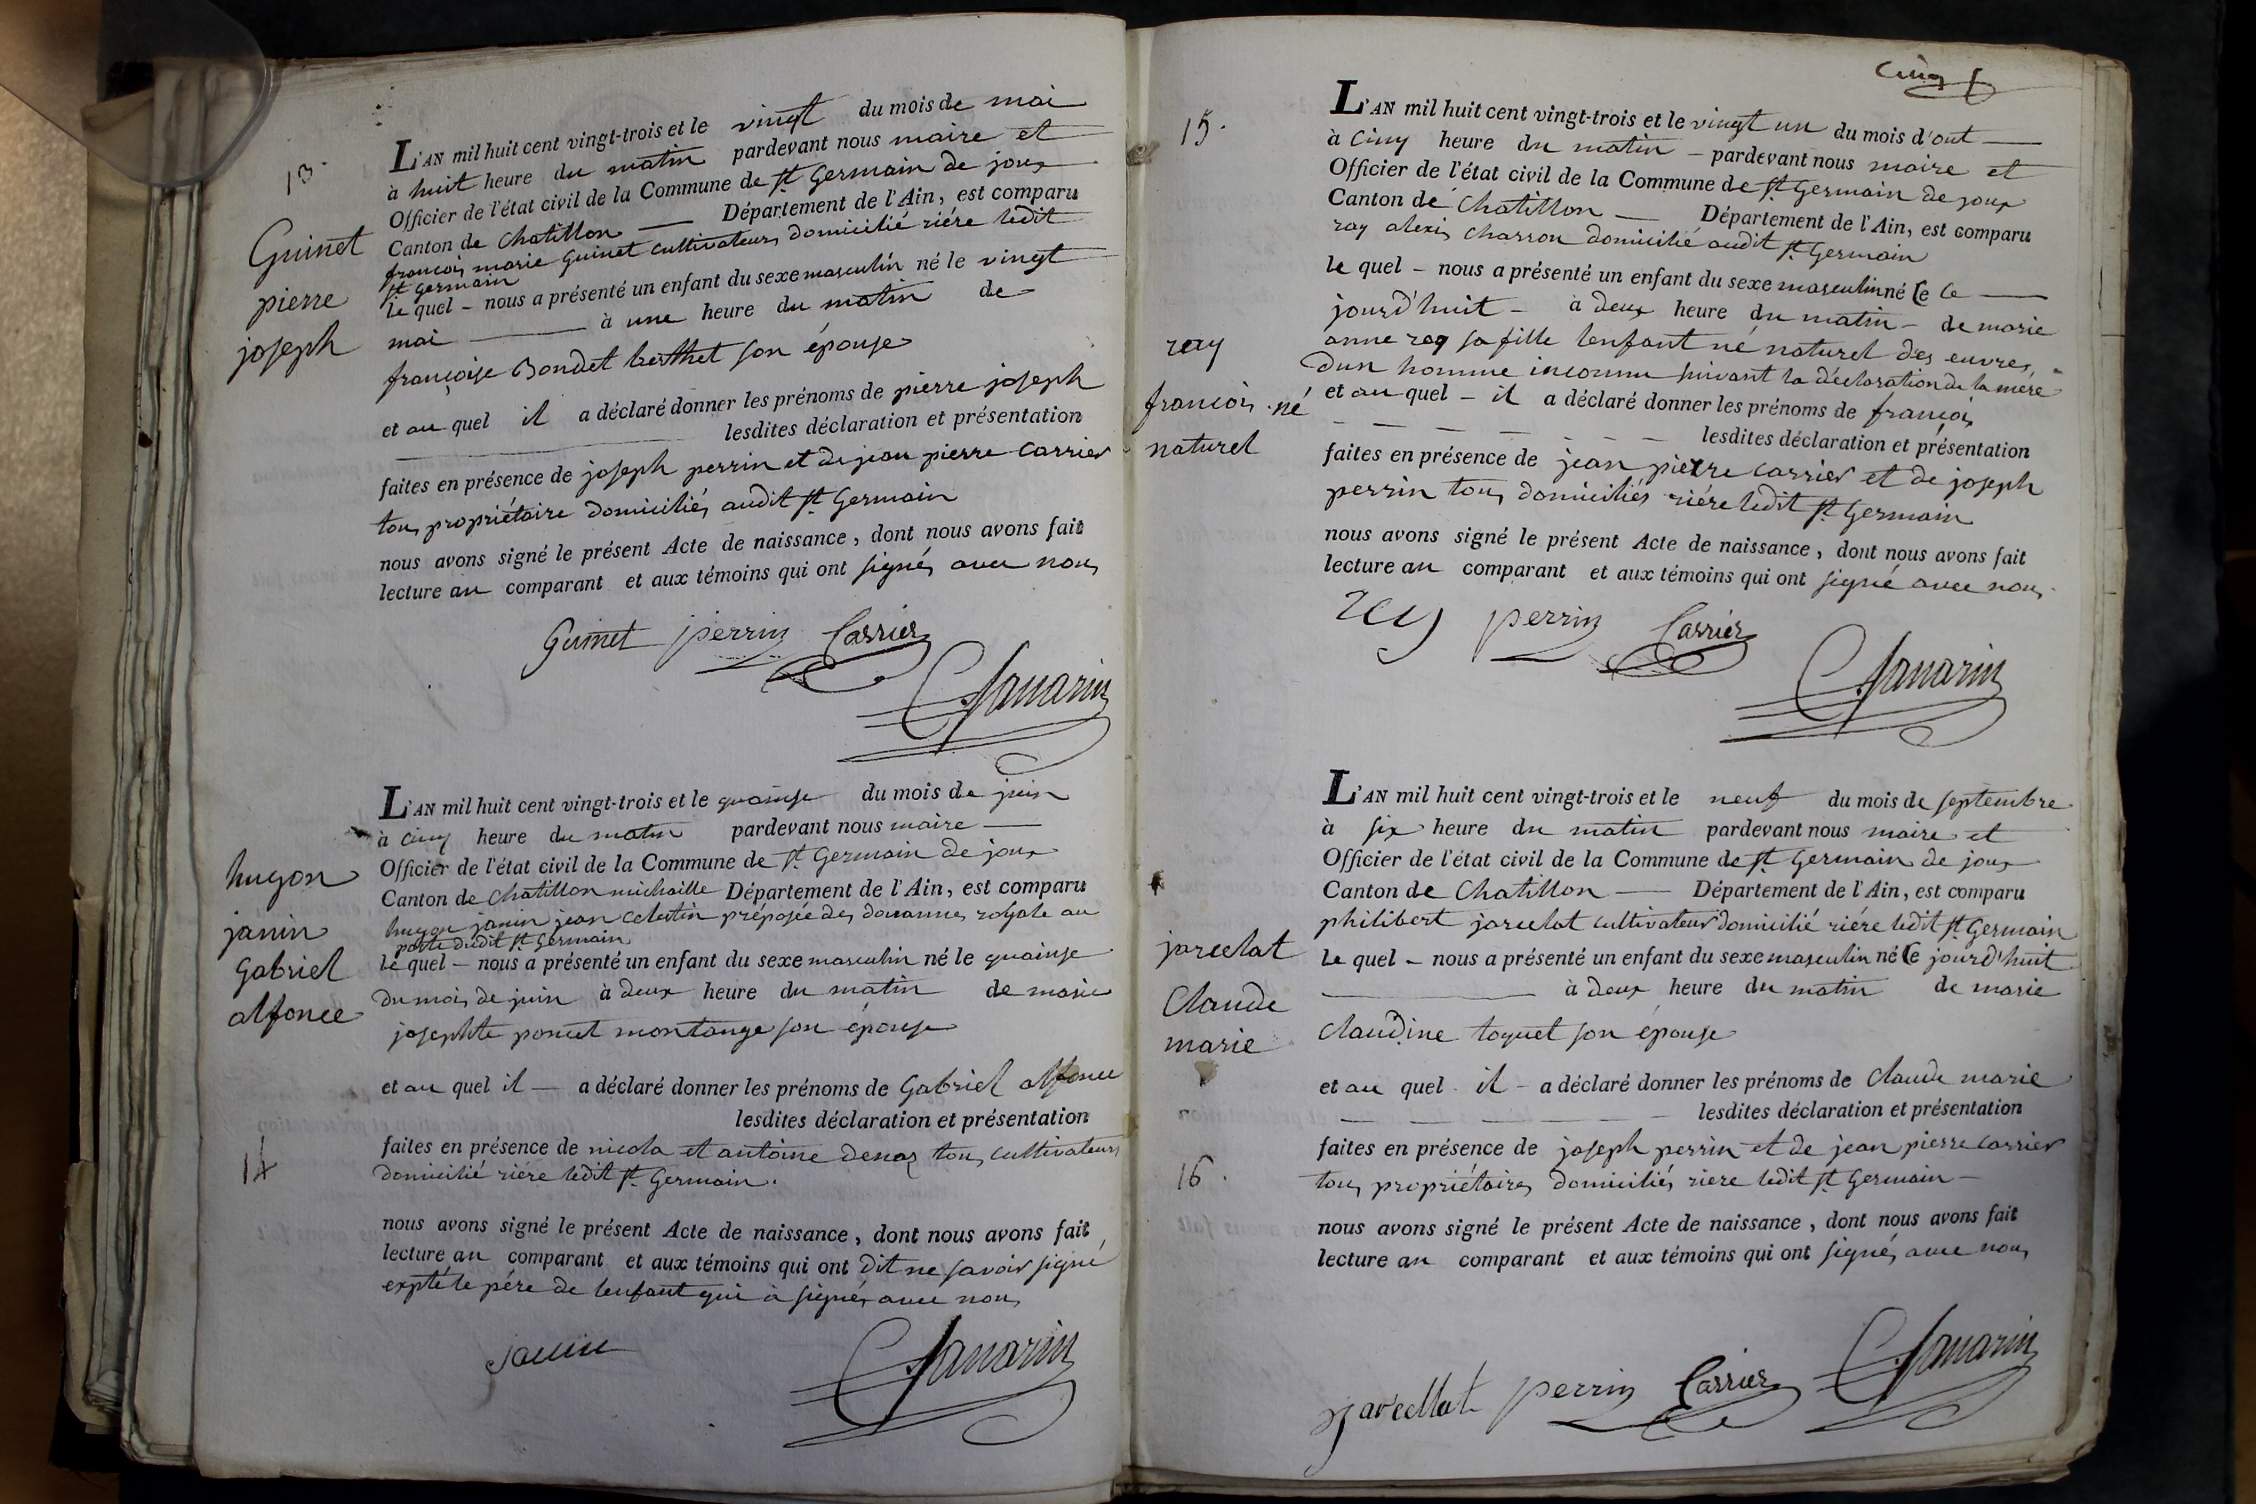 13.
Guinet
pierre
joseph
L'AN mil huit cent vingt-trois et le vingt du mois de mai
à huit heure du matin pardevant nous maire et
Officier de l'état civil de la Commune de st Germain de joux
Canton de Chatillon — Département de l'Ain, est comparu
francois marie Guinet cultivateur domicilié riére ledit
st germain
le quel – nous a présenté un enfant du sexe masculin né le vingt
mai — à une heure du matin de
françoise Bondet berthet son épouse
et au quel il a déclaré donner les prénoms de pierre joseph
lesdites déclaration et présentation
faites en présence de joseph perrin et de jean pierre carrier
tous propriétaire domiciliés audit st Germain
nous avons signé le présent Acte de naissance, dont nous avons fait
lecture au comparant et aux témoins qui ont signés avec nous
Guinet perrin Carrier
Savarin
hugon
janin
Gabriel
alfonce
14
L'AN mil huit cent vingt-trois et le quainse du mois de juin
à cinq heure du matin pardevant nous maire —
Officier de l'état civil de la Commune de st Germain de joux
Canton de Chatillon michaille Département de l'Ain, est comparu
hugon janin jean celestin préposée des douannes royale au
poste dudit st Germain
le quel – nous a présenté un enfant du sexe masculin né le quainse
du mois de juin à deux heure du matin de marie
josephte poncet montange son épouse
et au quel il — a déclaré donner les prénoms de Gabriel alfonce
lesdites déclaration et présentation
faites en présence de nicola et antoine tous cultivateurs
domicilié riére ledit st Germain.
nous avons signé le présent Acte de naissance, dont nous avons fait
lecture au comparant et aux témoins qui ont dit ne savoir signé
expté le pére de lenfant qui à signés avec nous
janin
Savarin
cinq
15.
ray
francois né
naturel
L'AN mil huit cent vingt-trois et le vingt un du mois d'out —
à cinq heure du matin – pardevant nous maire et
Officier de l'état civil de la Commune de st Germain de joux
Canton de Chatillon — Département de l'Ain, est comparu
ray alexis charron domicilié audit st Germain
le quel – nous a présenté un enfant du sexe masculin né le ce —
jourd'huit – à deux heure du matin – de marie
anne ray sa fille lenfant né naturel des euvres
dun homme inconnu suivant la déclaration de la mére
et au quel – il a déclaré donner les prénoms de francois
lesdites déclaration et présentation
faites en présence de jean pierre carrier et de joseph
perrin tous domiciliés riére ledit st Germain
nous avons signé le présent Acte de naissance, dont nous avons fait
lecture au comparant et aux témoins qui ont signé avec nous.
rey perrin Carrier
Savarin
jarcelat
Claude
marie
16.
L'AN mil huit cent vingt-trois et le neuf du mois de septembre
à six heure du matin pardevant nous maire et
Officier de l'état civil de la Commune de st Germain de joux
Canton de Chatillon — Département de l'Ain, est comparu
philibert jarcelat cultivateur domicilié riére ledit st Germain
le quel – nous a présenté un enfant du sexe masculin né ce jourd'huit
— à deux heure du matin de marie
claudine toquet son épouse
et au quel il – a déclaré donner les prénoms de Claude marie
lesdites déclaration et présentation
faites en présence de joseph perrin et de jean pierre carrier
tous propriétaires domiciliés riere ledit st Germain —
nous avons signé le présent Acte de naissance, dont nous avons fait
lecture au comparant et aux témoins qui ont signés avec nous
jarcellat perrin Carrier Savarin